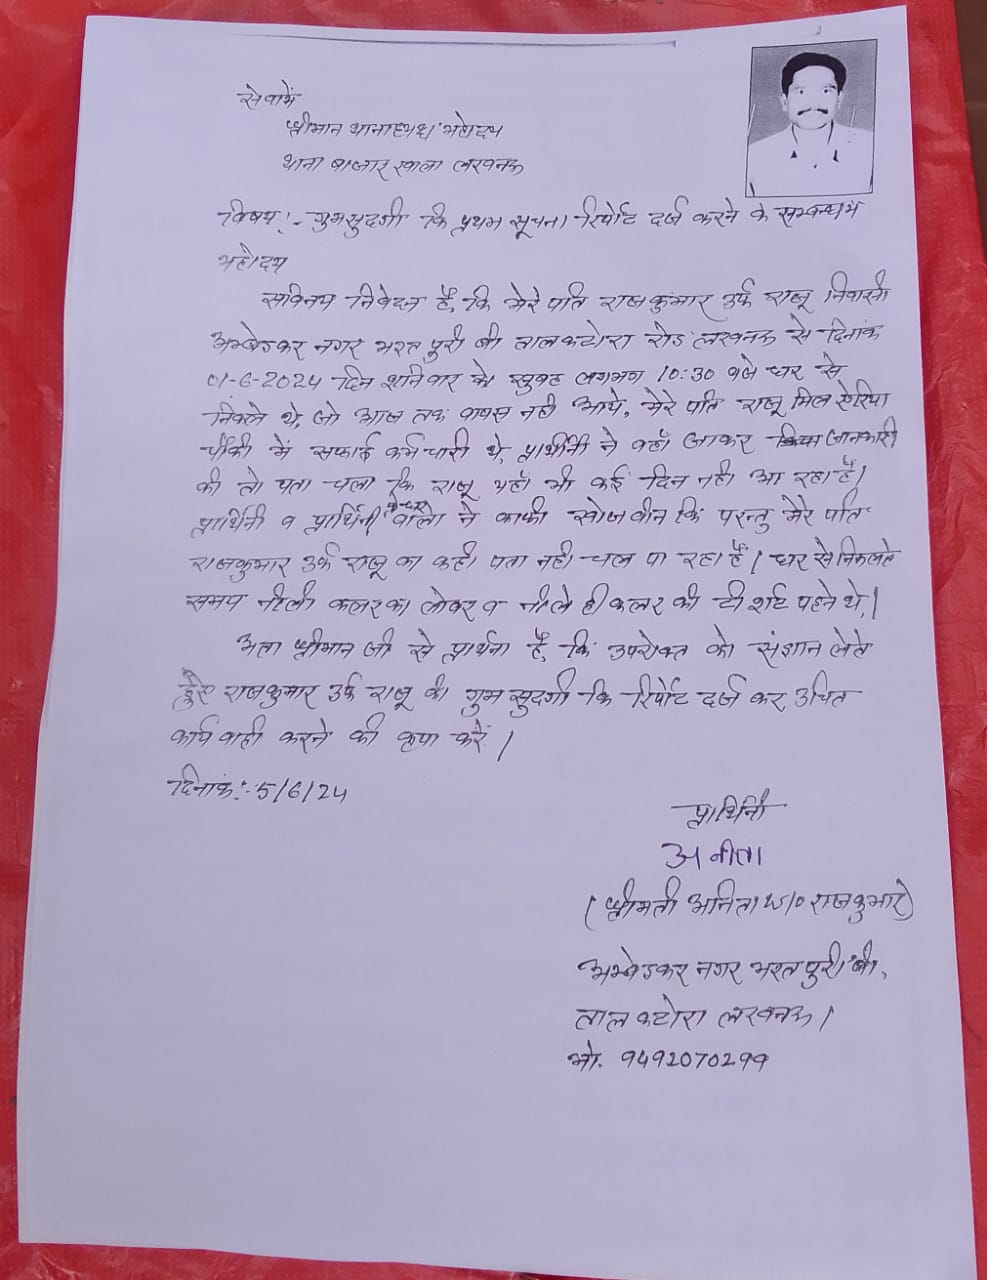 सेवामें
श्रीमान थानाध्यक्ष महोदय
थाना बाजार खाला लखनऊ
विषय:- गुमसुदगी कि प्रथम सूचना रिर्पोट दर्ज करने के सम्बन्धमें
महोदय
सविनय निवेदन है, कि मेरे पति राजकुमार उर्फ राजू निवासी
अम्बेडकर नगर भरतपुरी बी तालकटोरा रोड लखनऊ से दिनांक
01-6-2024 दिन शनिवार को सुबह लगभग 10:30 बजे घर से
निकले थे, जो आज तक वापस नही आये, मेरे पति राजू मिल ऐरिया
चौकी में सफाई कर्मचारी थे, प्रार्थीनी ने वहाँ जाकर जानकारी
की तो पता चला कि राजू यहाँ भी कई दिन नही आ रहा है।
प्रार्थिनी व प्रार्थिनी के घर वालो ने काफी खोजबीन कि परन्तु मेरे पति
राजकुमार उर्फ राजू का कही पता नही चल पा रहा है। घर से निकलते
समय नीली कलर का लोवर व नीले ही कलर की टी शर्ट पहने थे।
अतः श्रीमान जी से प्रार्थना है, कि उपरोक्त को संज्ञान लेते
हुऐ राजकुमार उर्फ राजू की गुमसुदगी कि रिर्पोट दर्ज कर उचित
कार्यवाही करने की कृपा करें।
दिनांक:- 5/6/24
प्रार्थिनी
अनीता
(श्रीमती अनिता W/O राजकुमार)
अम्बेडकर नगर भरतपुरी बी,
तालकटोरा लखनऊ।
मो. 9492070299